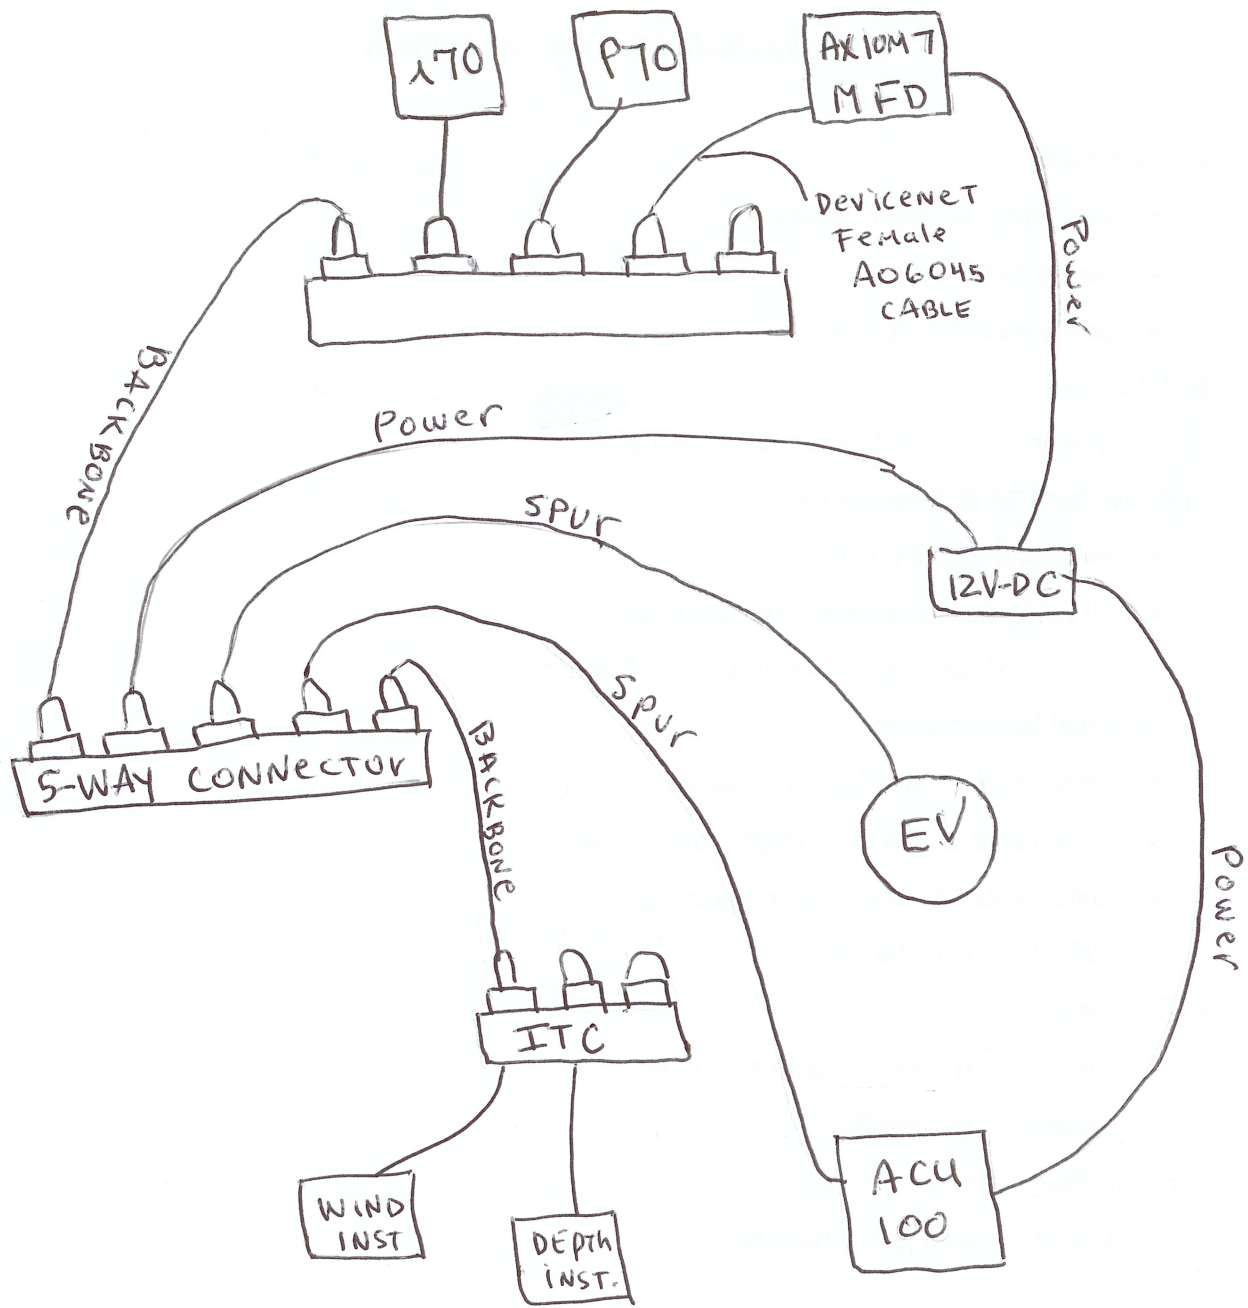 i70
P70
AXIOM 7
MFD
DEVICENET
Female
A06045
CABLE
Power
BACKBONE
Power
SPUr
12V-DC
Spur
5-WAY CONNECTOr
BACKBONE
EV
Power
ITC
WIND
INST
DEPTh
INST.
ACU
100